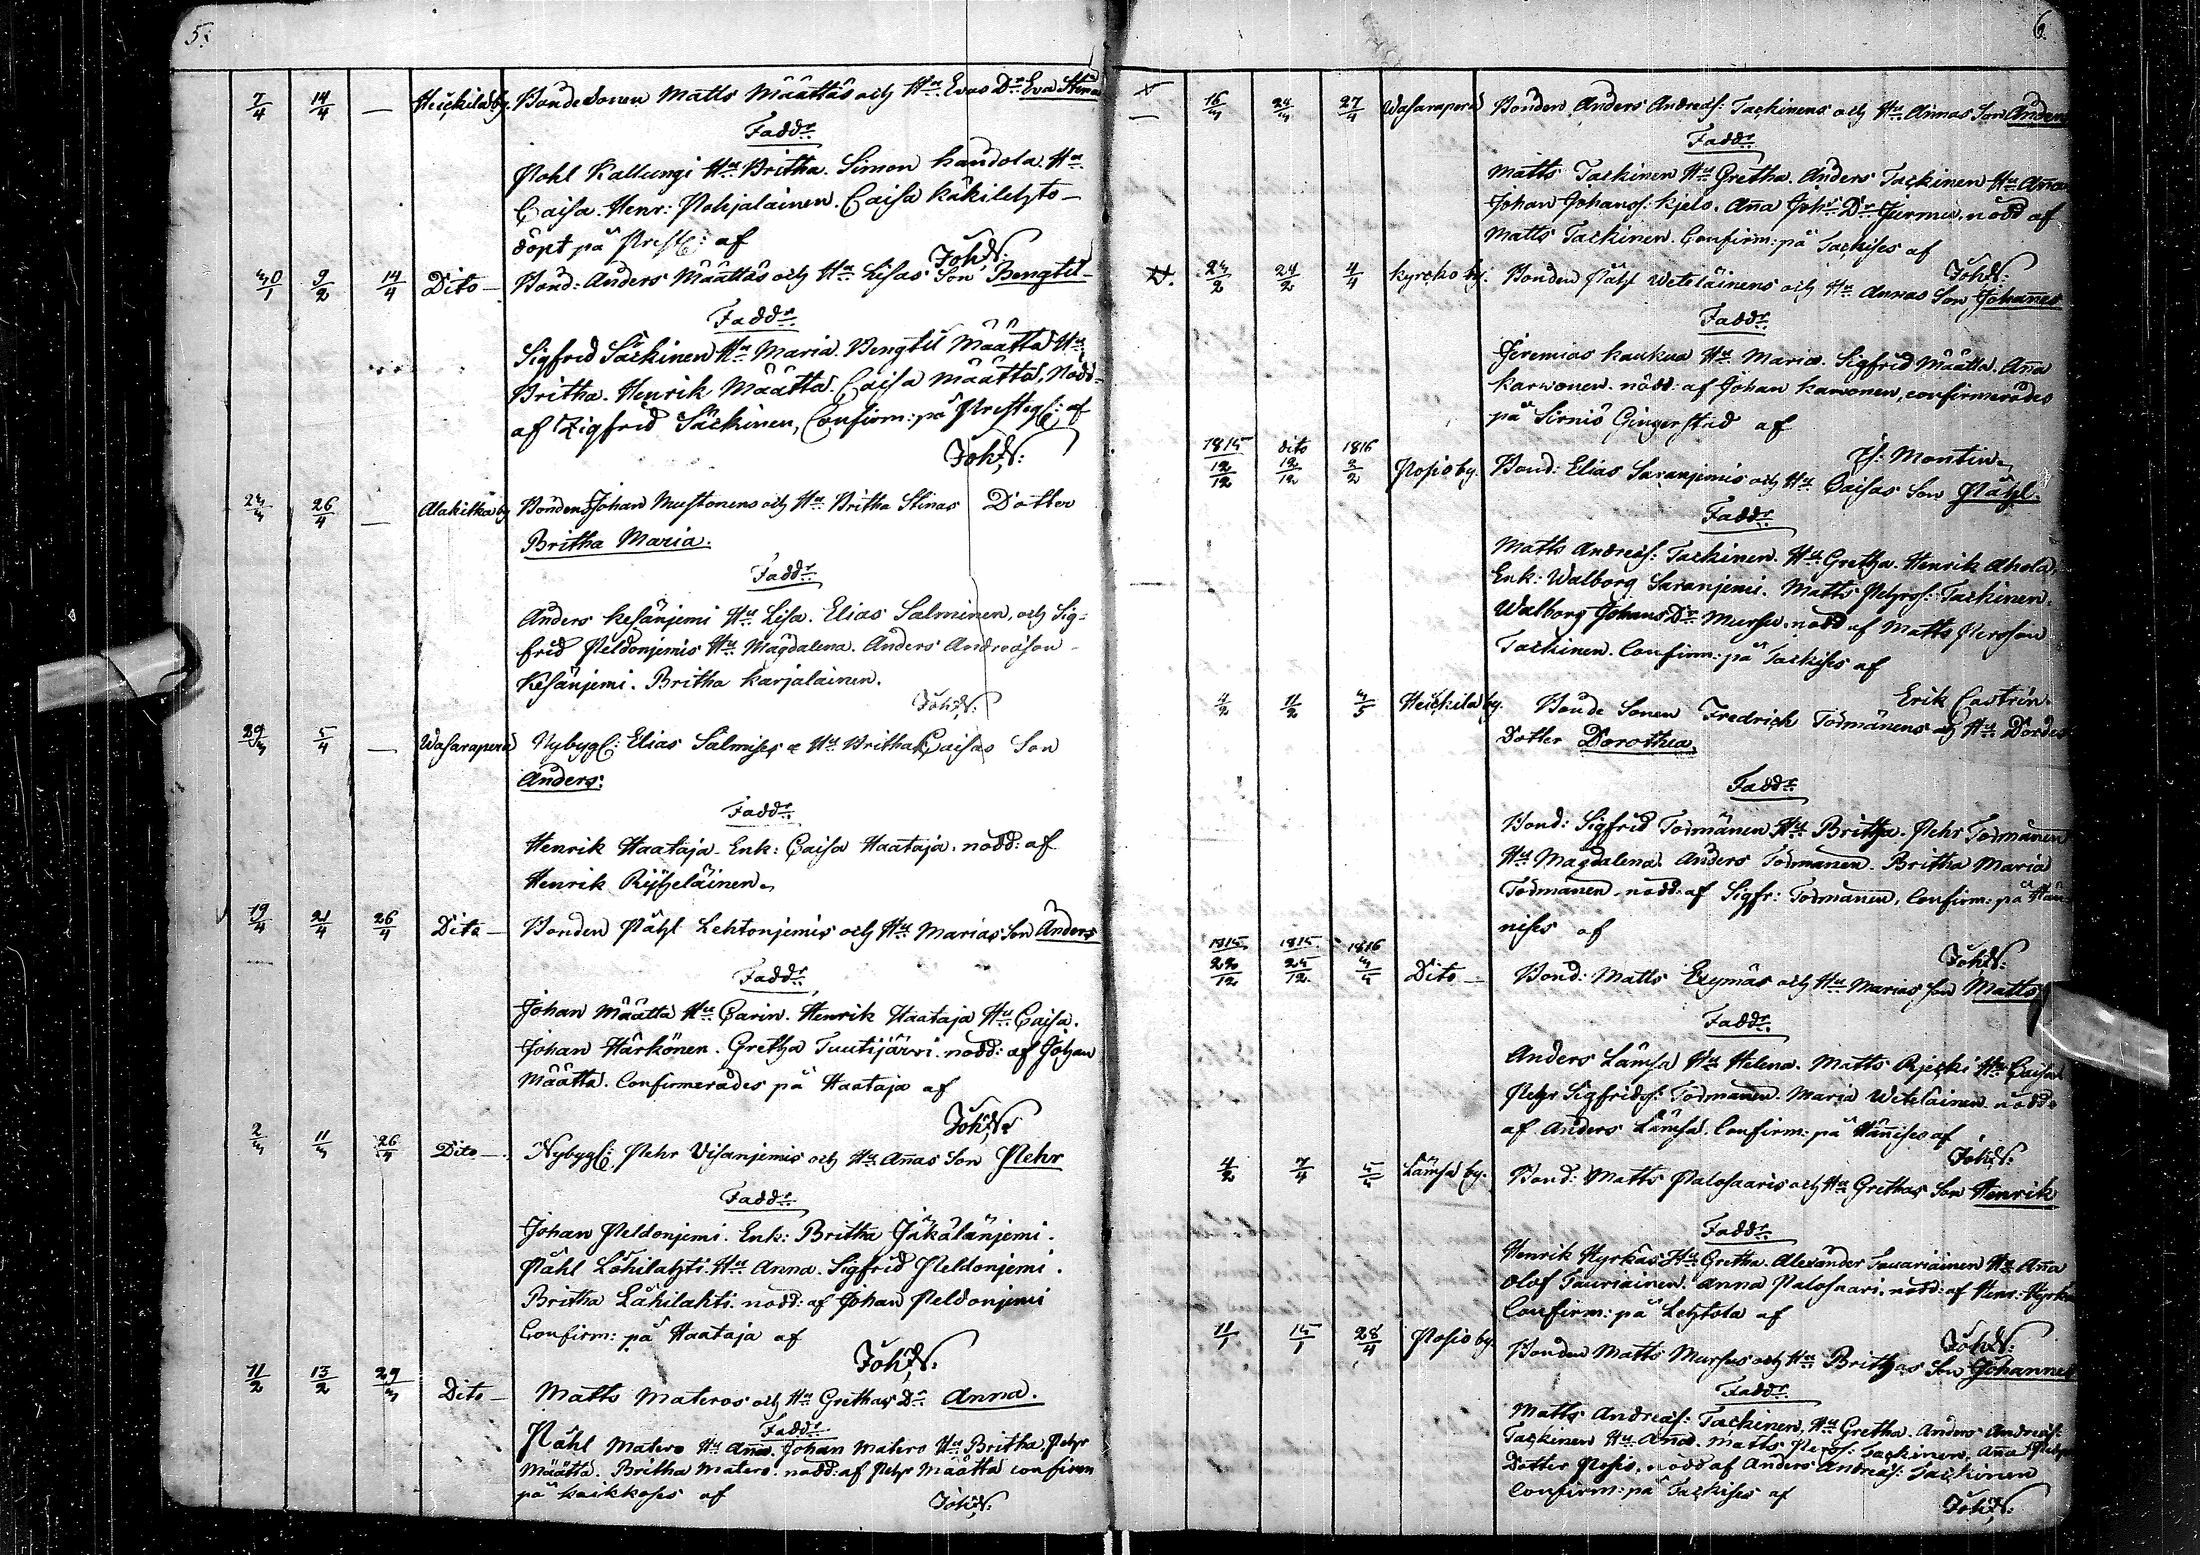 5.
7/4 14/4 — Heickilä by. Bonde Sonen Matts Määttäs och Hu Evas Dr Eva Stina
Faddr
Pohl Kallungi Hu Britha. Simon Haudola Hu
Caisa. Henr: Pohjalainen. Caisa Käkilehto —
döpt på Prestg: af
Joh. N:
30/1 9/2 14/4 Dito — Bond: Anders Määttäs och Hu Lisas Son Bengtil
Faddr
Sigfred Säckinen Hu Maria. Bengtil Määttä Hu
Britha. Henrik Määttä. Caisa Määttä, Nödd.
af Zigfrid Säckinen, Confirm: på Prestog: af
Joh. N:
23/3 26/4 — Alakitka by Bonden Johan Mustonens och Hu Britha Stinas Dotter
Britha Maria.
Faddr
Anders Kesänjemi Hu Lisa. Elias Salminen, och Sig-
frid Peldonjemis Hu Magdalena. Anders Andreasson
Kesänjemi. Britha Karjalainen.
Joh. N:
29/3 5/4 — Wasaraperä Nybygg: Elias Salmises & Hu Britha Caisas Son
Anders:
Faddr
Henrik Haataja. Enk: Caisa Haataja. nödd: af
Henrik Riiheläinen.
19/4 21/4 26/4 Dito — Bonden Påhl Lehtonjemis och Hu Marias Son Anders
Faddr
Johan Määttä Hu Carin. Henrik Haataja Hu Caisa.
Johan Härkönen. Gretha Tuutijärvi. nödd: af Johan
Määttä. Confirmerades på Haataja af
Joh. N:
2/3 11/3 26/4 Dito — Nybygg: Pehr Visanjemis och Hu Annas Son Pehr
Faddr
Johan Peldonjemi. Enk: Britha Jäkälänjemi.
Påhl Låhilahti. Hu Anna. Sigfrid Peldonjemi.
Britha Låhilahti. nödd: af Johan Peldonjemi
Confirm: på Haataja af
Joh. N:
11/2 13/2 29/3 Dito — Matts Materos och Hu Grethas Dr Anna.
Faddr
Påhl Matero Hu Anna. Johan Matero Hu Britha, Pehr
Määttä. Britha Matero. nödd: af Pehr Määttä confirm
på Kaikkoses af
Joh. N:
6.
16/3 24/3 27/4 Wasaraperä Bonden Anders Andreas: Tackinens och Hu Annas Son Anders
Faddr
Matts Tackinen Hu Gretha. Anders Tackinen Hu Anna
Johan Johanss: Kjelo. Anna Joh: Dr Jurmu, nödd af
Matts Tackinen. Confirm: på Tackises af
Joh. N:
24/2 24/2 4/4 Kyrcko by. Bonden Påhl Weteläinens och Hu Annas Son Johannes
Faddr
Jeremias Kaukua Hu Maria. Sigfrid Määttä. Anna
Karwonen. nödd: af Johan Karwonen, confirmerades
på Sirniö Gingerstad af
Js: Montin.
1815 12/12 dito 12/12 1816 2/2 Posio by. Bond: Elias Saranjemis och Hu Caisas Son Påhl.
Faddr
Matts Andreas: Tackinen. Hu Gretha. Henrik Ahola,
Enk: Walborg Saranjemi. Matts Pehrss: Tackinen.
Walborg Johans Dr Mursu. nödd af Matts Persson
Tackinen. Confirm: på Tackises af
Erik Castrén.
4/2 11/2 3/5 Heickilä by. Bonde Sonen Fredrick Törmänens och Hu Dordes
Dotter Dorothea,
Faddr
Bond: Sigfrid Törmänen Hu Britha. Pehr Törmänen
Hu Magdalena. Anders Törmänen. Britha Maria
Törmänen. nödd: af Sigfr: Törmänen, Confirm: på Hän-
nises af
Joh. N:
1815 22/12 1815 25/12 1816 Dito — Bond: Matts Erymäs och Hu Marias Son Matts
Faddr
Anders Lämsä Hu Helena. Matts Rjecki Hu Caisa
Pehr Sigfridss: Törmänen. Maria Weteläinen. nödd:
af Anders Lämsä. Confirm: på Hännises af
Joh. N:
4/2 7/4 Lämsä by. Bond: Matts Palosaaris och Hu Grethas Son Henrik
Faddr
Henrik Hyrkäs Hu Gretha. Alexander Tauriainen Hu Anna
Olof Tauriainen. Anna Palosaari. nödd: af Henr: Hyrkäs
Confirm: på Lehtola af
Joh. N:
11/1 15/1 28/4 Posio by. Bonden Matts Mursus och Hu Brithas Son Johannes
Faddr
Matts Andreas: Tackinen, Hu Gretha. Anders Andreas:
Tackinen Hu Anna. Matts Perss: Tackinen, Anna Pehrs
Dotter Posio, nödd af Anders Andreas: Tackinen
Confirm: på Tackises af
Joh. N: